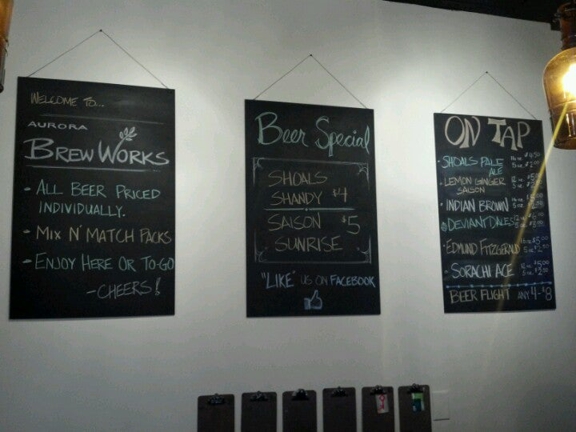 WELCOME TO...
AURORA
BREWWORKS
- ALL BEER PRICED
INDIVIDUALLY.
- MIX N' MATCH PACKS
- ENJOY HERE OR TO-GO
- CHEERS!
Beer Special
SHOALS
SHANDY $4
SAISON $5
SUNRISE
"LIKE" US ON FACEBOOK
ON TAP
SHOALS PALE
ALE
LEMON GINGER
SAISON
INDIAN BROWN
DEVIANT DALES
EDMUND FITZGERALD
SORACHI ACE
BEER FLIGHT ANY 4-$8